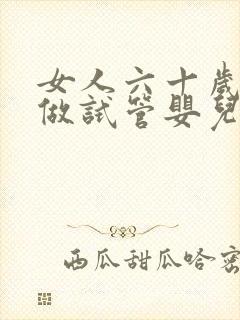 女人六十歲
做試管嬰兒
西瓜甜瓜哈密